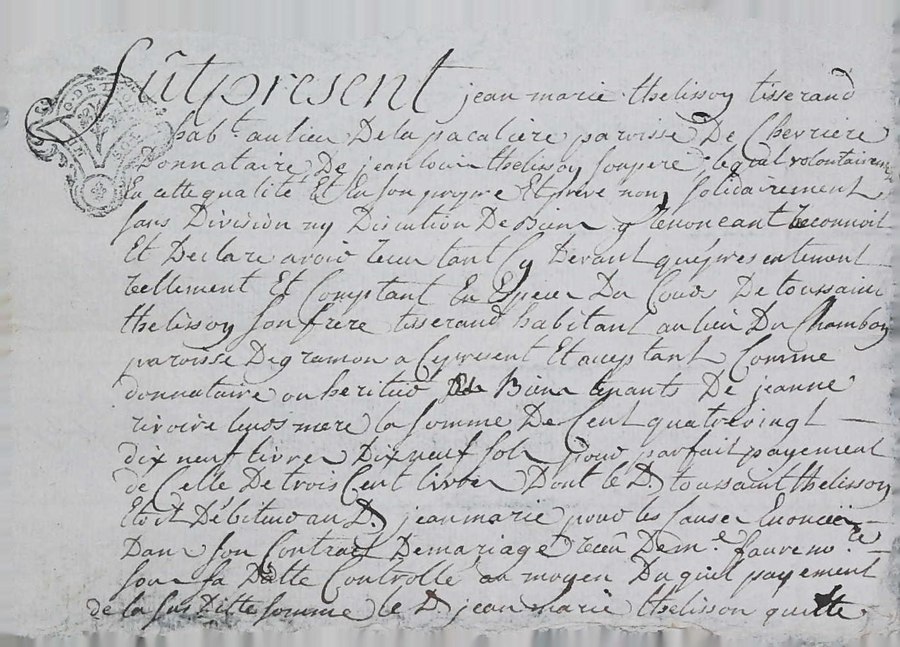 fût present jean marie thelisson tisserand
habt au lieu De la pacaliere paroisse De Chevriere
Donnataire De jean louis thelisson son pere, lequel volontairemt
En cette qualité Et En son propre Et privé nom solidairement
sans Division ny Discution De Biens y Renonceant Reconnoit
Et Declare avoir Receu tant Cy Devant que presentement
Reellement Et Comptant En Espece Du Cours De toussaint
thelisson son frere tisserand habitant au lieu Du Chambon
paroisse De gramon a Ce present Et aceptant Comme
donnataire ou heritier Et Bien tenants De jeanne
rivoire leurs mere la somme De Cent quatre vingt
dix neuf livres Dix neuf sols pour parfait payement
de Celle De trois Cent livres Dont le D. toussaint thelisson
Etoit Débiteur au D. jean marie pour les Causes Enoncées
Dans son Contract De mariage receu De me faure nore
sous sa Datte Controllé au moyen Duquel payement
de la sus Ditte somme le D. jean marie thelisson quitte